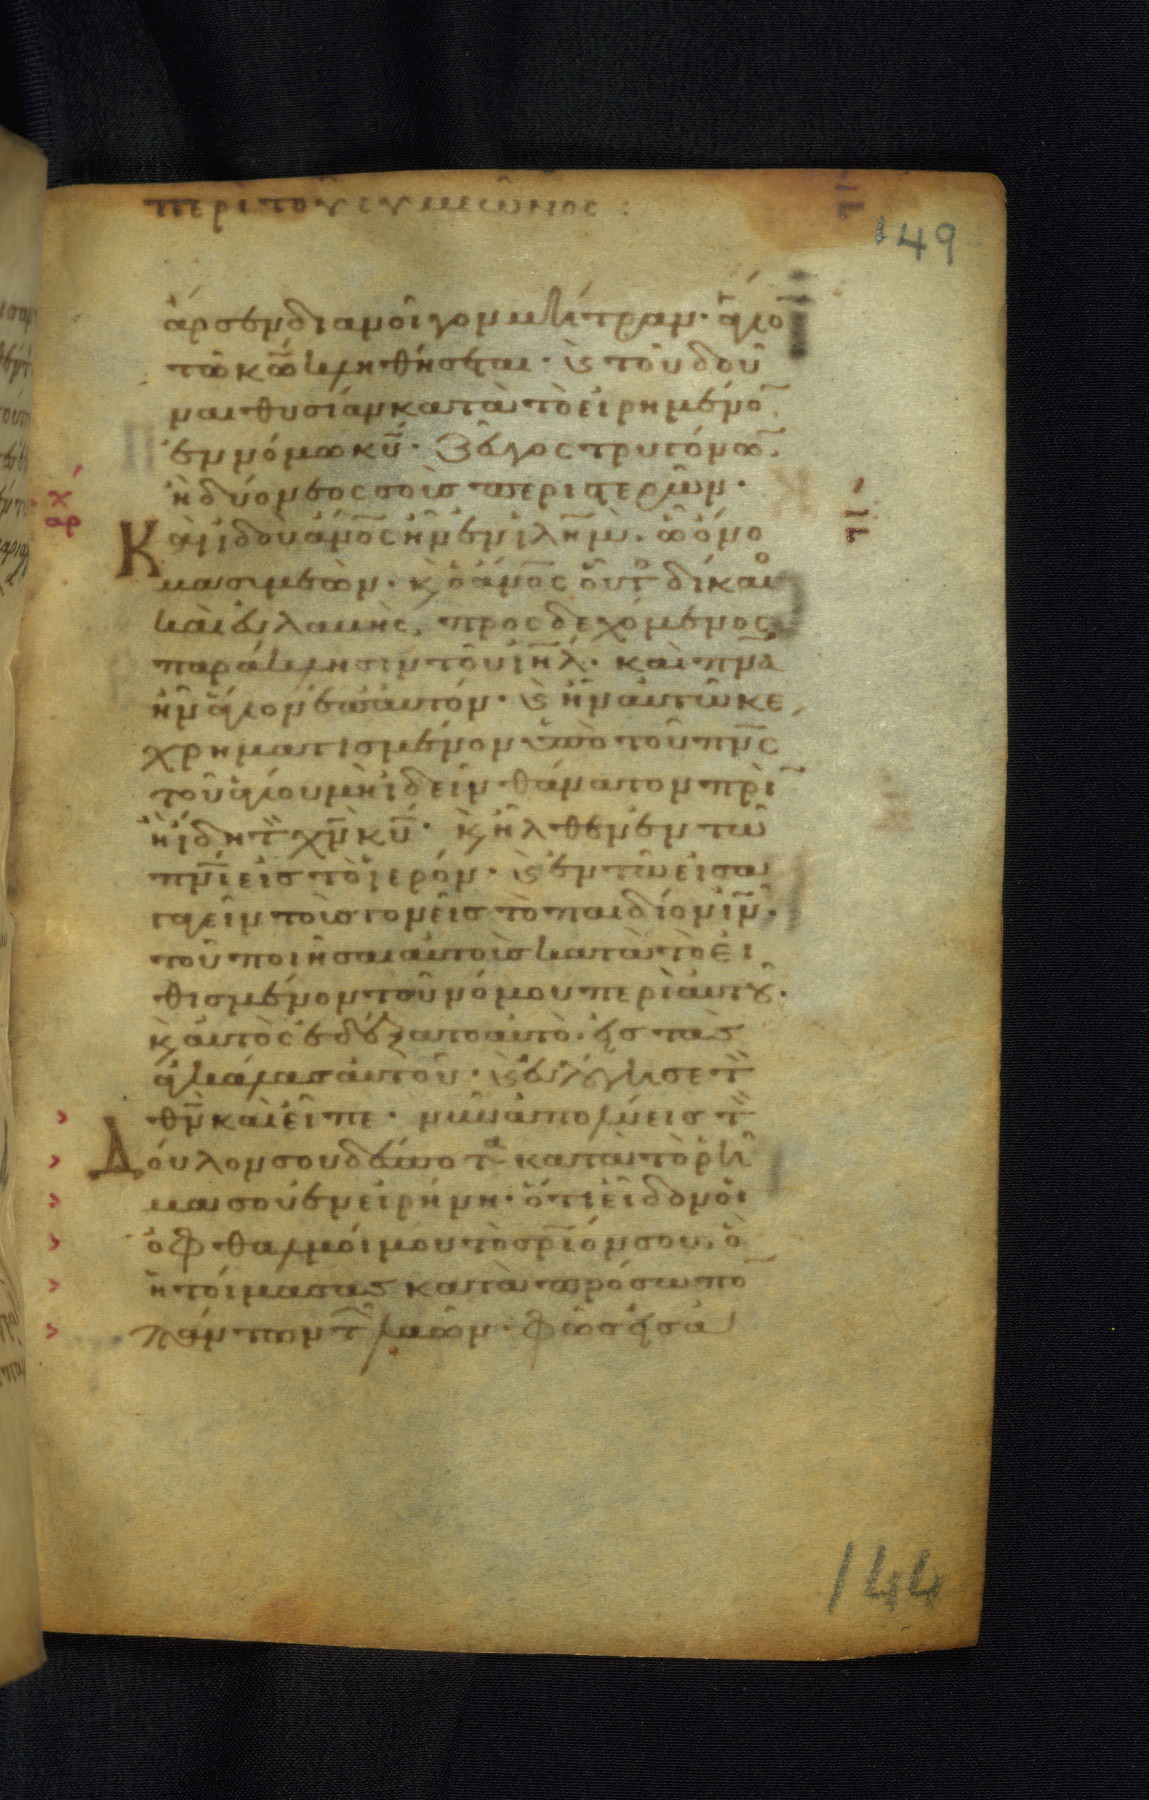 περὶ τοῦ συμεῶνος :
149
ἄρσεν διανοῖγον μήτραν· ἅγιο̅
τῶ κ̅ω̅ κληθήσεται· ϗ τοῦ δοῦ
ναι θυσίαν κατὰ τὸ εἰρημένο̅
ἐν νόμω κ̅υ̅· ζεῦγος τρυγόνω̅
ἢ δύο νεοσσοὺς περιστερῶν·
Καὶ ἰδοὺ ἀ̅ν̅ο̅ς ἦν ἐν ἰ̅λ̅η̅μ̅· ὧ ὄνο
μα συμεὼν· ϗ ὁ ἀ̅ν̅ο̅ς οὗτο δίκαιο
καὶ εὐλαβὴς, προσδεχόμενος
παράκλησιν τοῦ ἰ̅η̅λ̅· καὶ π̅ν̅α̅
ἦν ἅγιον ἐπ' αὐτόν· ϗ ἦν αὐτῶ κε
χρηματισμένον ὑπὸ τοῦ π̅ν̅ς̅
τοῦ ἁγίου μὴ ἰδεῖν θάνατον πρὶ̅
ἢ ἴδη τ̅ χ̅ν̅ κ̅υ̅· ϗ ἦλθεν ἐν τῶ
π̅ν̅ι̅ εἰς τὸ ἱερόν· ϗ ἐν τῶ εἰσα
γαγεῖν τοὺς γονεῖς τὸ παιδίον ἰ̅ν̅·
τοῦ ποιῆσαι αὐτοὺς κατὰ τὸ εἰ
θισμένον τοῦ νόμου περὶ αὐτοῦ·
ϗ αὐτὸς ἐδέξατο αὐτὸ· εἰς τὰς
ἀγκάλας αὐτοῦ· ϗ εὐλόγησε τ̅
θ̅ν̅ καὶ εἶπε· νῦν ἀπολύεις τ̅
Δοῦλον σου δέσποτα κατὰ τὸ ῥῆ
μα σου ἐν εἰρήνη· ὅτι εἶδον οἱ
ὀφθαλμοί μου τὸ σ̅ρ̅ι̅όν σου, ὃ
ἡτοίμασας κατὰ πρόσωπο̅
πάντων τ̅ λαῶν· φῶς εἰς ἀ
144